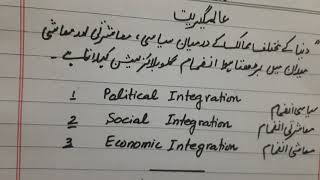 عالمگیریت
"دنیا کے مختلف ممالک کے درمیان سیاسی، معاشرتی اور معاشی
میدان میں بڑھتا ہوا انضمام گلوبلائزیشن کہلاتا ہے۔
1 Political Integration سیاسی انضمام
2 Social Integration معاشرتی انضمام
3 Economic Integration معاشی انضمام